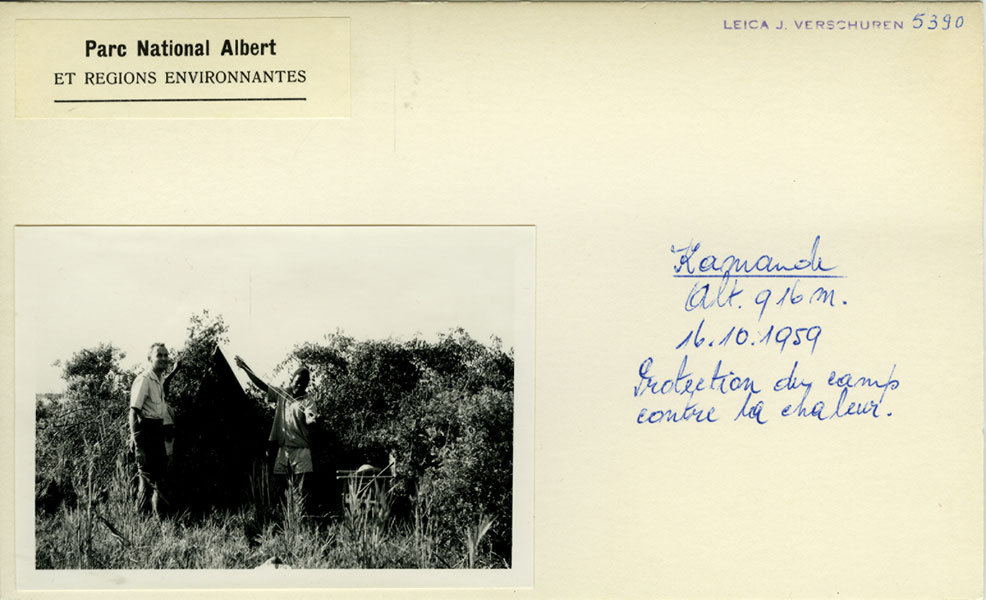 Parc National Albert
ET REGIONS ENVIRONNANTES
LEICA J. VERSCHUREN 5390
Kamande
Alt. 916 m.
16.10.1959
Protection du camp
contre la chaleur.